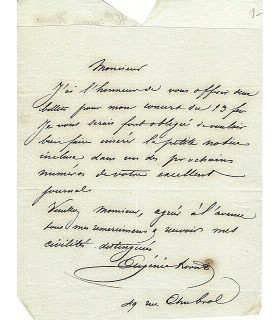 1-
Monsieur
J'ai l'honneur de vous offrir deux
billets pour mon concert du 13 fev
Je vous serais fort obligé de vouloir
bien faire insérer la petite notice
incluse dans un des prochains
numéros de votre excellent
journal
Veuillez Monsieur, agréer à l'avance
tous mes remerciements & recevoir mes
civilités distinguées
Eugénie
49 rue Chabrol